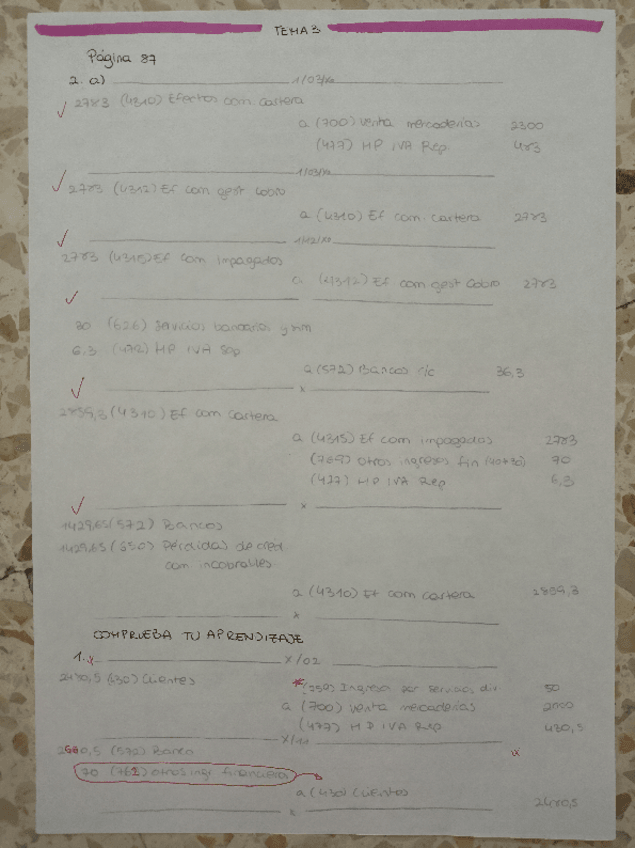 TEMA 3
Página 87
2. a) 1/03/x
2783 (4310) Efectos com. cartera
a (700) Venta mercaderías 2300
(477) HP IVA Rep. 483
1/03/x
2783 (4312) Ef com gest cobro
a (4310) Ef com. cartera 2783
1/12/x
2783 (4315) Ef com impagados
a (4312) Ef com gest cobro 2783
30 (626) Servicios bancarios y sim
6,3 (472) HP IVA Sop
a (572) Bancos c/c 36,3
x
2859,3 (4310) Ef com cartera
a (4315) Ef com impagados 2783
(769) Otros ingresos fin (40+30) 70
(477) HP IVA Rep 6,3
x
1429,65 (572) Bancos
1429,65 (650) Pérdidas de cred
com incobrables
a (4310) Ef com cartera 2859,3
x
COMPRUEBA TU APRENDIZAJE
1. x/02
(430) Clientes
(759) Ingresos por servicios div 50
a (700) Venta mercaderías 2000
(477) HP IVA Rep 430,5
(572) Banco
70 (762) otros ingr financieros
a (430) Clientes
x